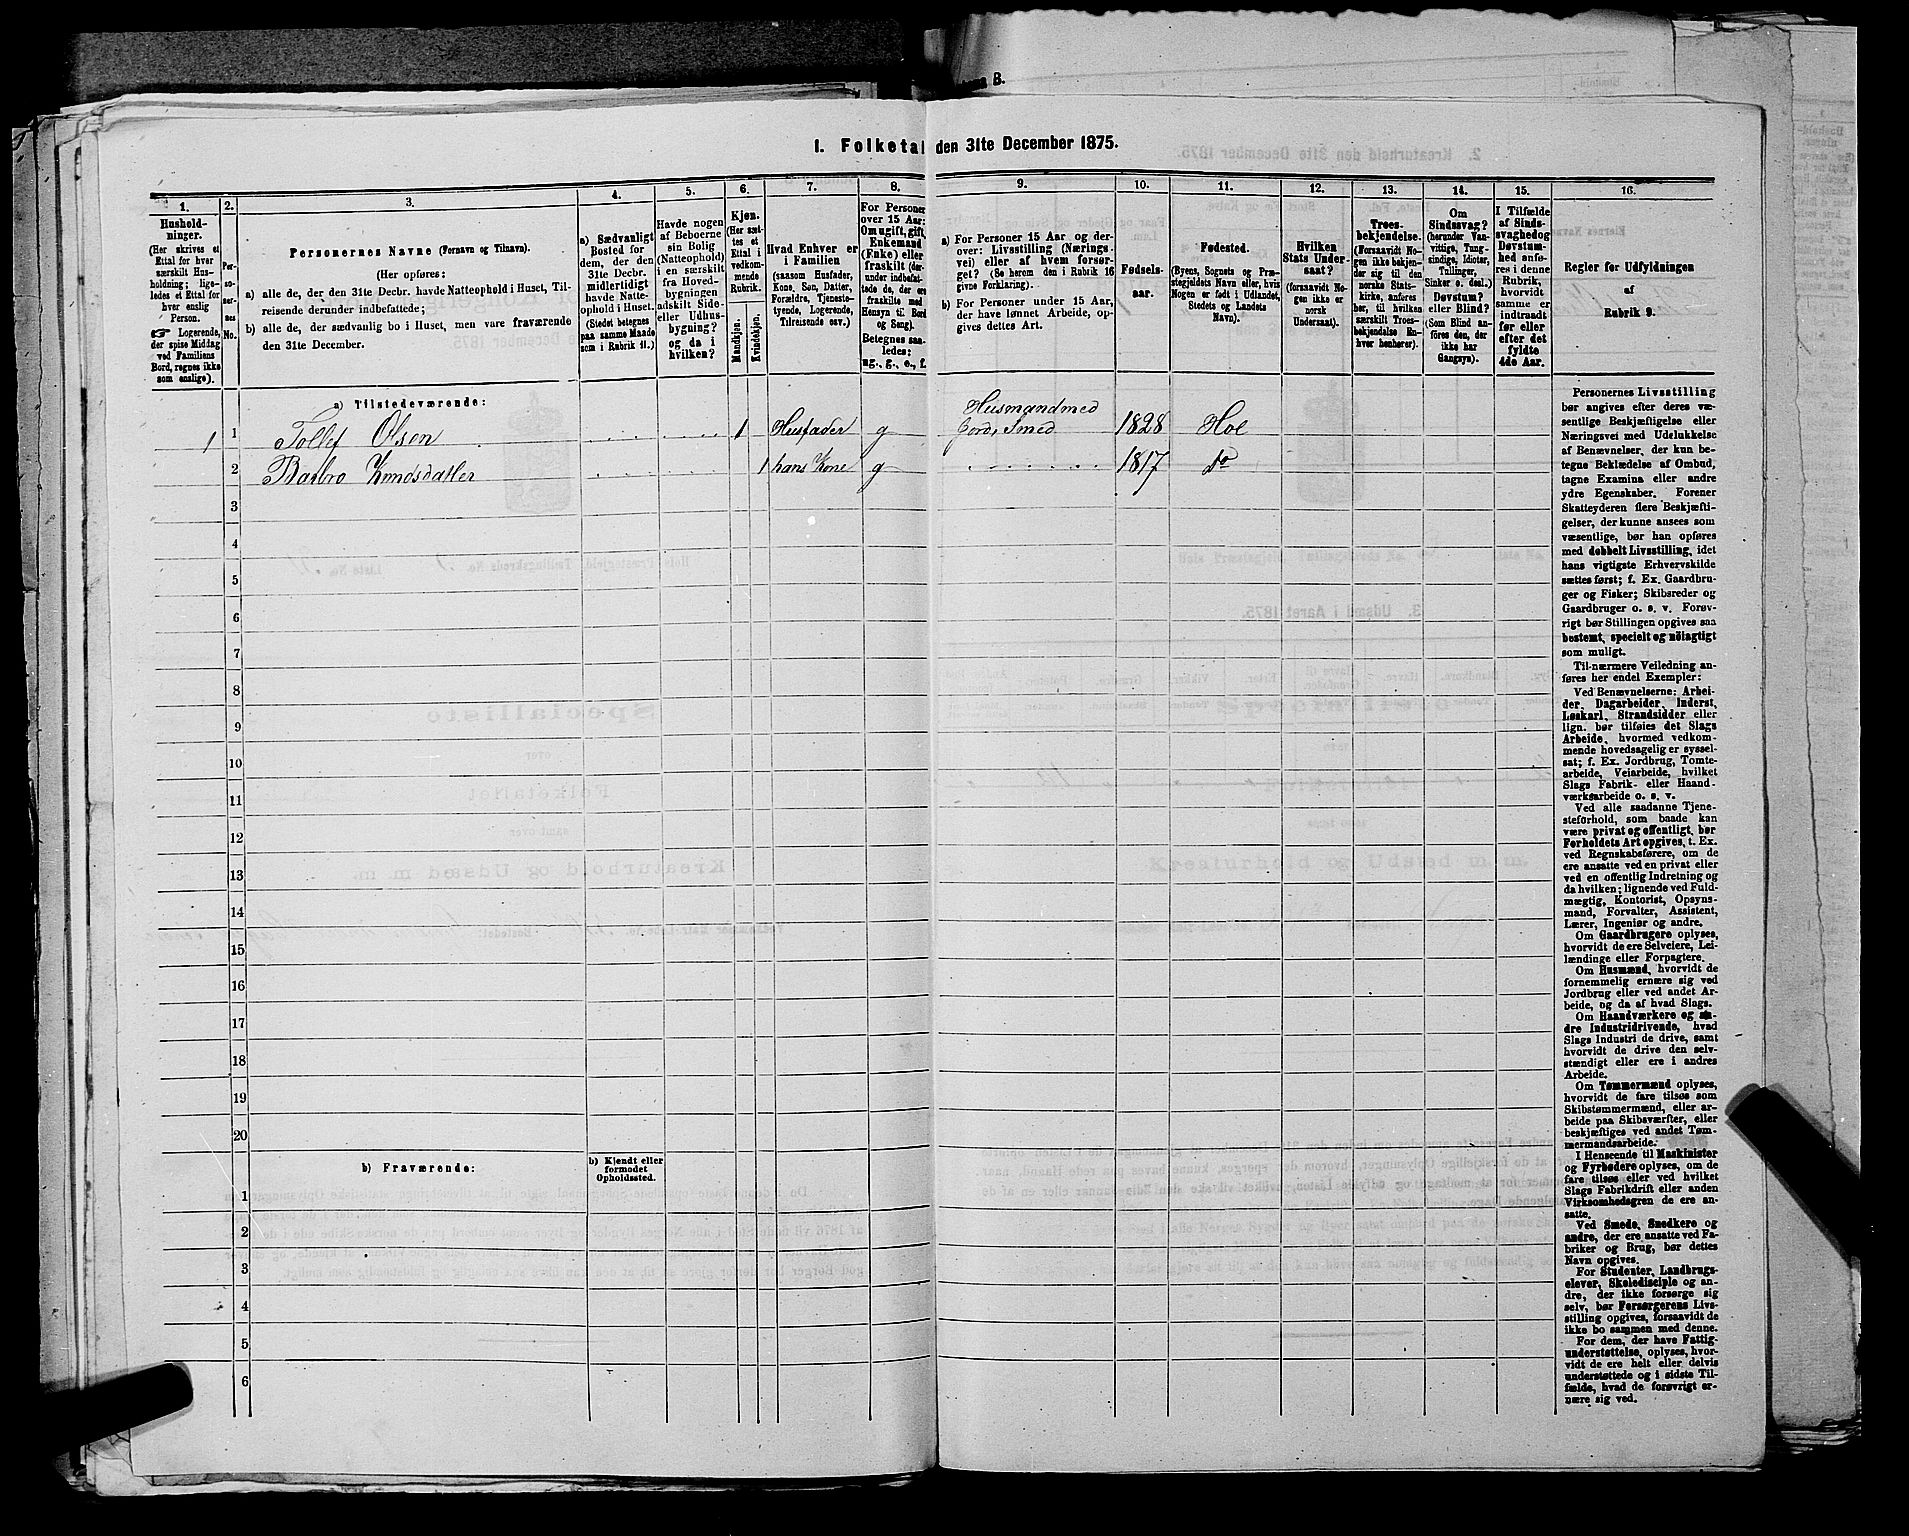 B.
I. Folketal den 31te December 1875.
1.
Hushold-
ninger.
(Her skrives et
Ettal for hver
særskilt Hus-
holdning; lige-
ledes et Ettal for
hver enslig
Person.
☞ Logerende,
der spise Middag
ved Familiens
Bord, regnes ikke
som enslige).
2.
Per-
so-
ner-
nes
No.
3.
Personernes Navne (Fornavn og Tilnavn).
(Her opføres:
a) alle de, der den 31te Decbr. havde Natteophold i Huset, Til-
reisende derunder indbefattede;
b) alle de, der sædvanlig bo i Huset, men vare fraværende
den 31te December.
4.
a) Sædvanligt
Bosted for
dem, der den
31te Decbr.
midlertidigt
havde Natte-
ophold i Huset.
(Stedet betegnes
paa samme Maade
som i Rubrik 11.)
5.
Havde nogen
af Beboerne
sin Bolig
(Natteophold)
i en særskilt
fra Hoved-
bygningen
adskilt Side-
eller Udhus-
bygning?
og da i
hvilken?
6.
Kjøn.
(Her sæt-
tes et
Ettal i
vedkom-
mende
Rubrik.
Mandkjøn.
Kvindekjøn.
7.
Hvad Enhver er
i Familien
(saasom Husfader,
Kone, Søn, Datter,
Forældre, Tjeneste-
tyende, Logerende,
Tilreisende osv.)
8.
For Personer
over 15 Aar:
Om ugift, gift,
Enkemand
(Enke) eller
fraskilt (der-
under indbefat-
tede de, der ere
fraskilte med
Hensyn til Bord
og Seng).
Betegnes saa-
ledes:
ug., g., e., f.
9.
a) For Personer 15 Aar og der-
over: Livsstilling (Nærings-
vei) eller af hvem forsør-
get? (Se herom den i Rubrik 16
givne Forklaring).
b) For Personer under 15 Aar,
der have lønnet Arbeide, op-
gives dettes Art.
10.
Fødsels-
aar.
11.
Fødested.
(Byens, Sognets og Præ-
stegjeldets Navn eller, hvis
Nogen er født i Udlandet,
Stedets og Landets
Navn).
12.
Hvilken
Stats Under-
saat?
(forsaavidt No-
gen ikke er
norsk
Undersaat).
13.
Troes-
bekjendelse.
(Forsaavidt No-
gen ikke beken-
der sig til den
norske Stats-
kirke, anføres
her, til hvilken
særskilt Troes-
bekjendelse En-
hver henhører).
14.
Om
Sindssvag?
(herunder Van-
vittige, Tung-
sindige, Idioter,
Tullinger,
Sinker o. desl.)
Døvstum?
eller Blind?
(Som Blind an-
føres den, der
ikke har
Gangsyn).
15.
I Tilfælde
af Sinds-
svaghed og
Døvstum-
hed anfø-
res i denne
Rubrik,
hvorvidt
samme er
indtraadt
før eller
efter det
fyldte
4de Aar.
16.
Regler for Udfyldningen
af
Rubrik 9.
a) Tilstedeværende:
1 1 Tollef Olsen 1 Husfader g Husmand med
Jord, Smed 1828 Hol
2 Barbro Knudsdatter 1 hans Kone g 1817 do
3
4
5
6
7
8
9
10
11
12
13
14
15
16
17
18
19
20
b) Fraværende:
b) Kjendt eller
formodet
Opholdssted.
1
2
3
4
5
6
Personernes Livsstilling
bør angives efter deres væ-
sentlige Beskjæftigelse eller
Næringsvei med Udelukkelse
af Benævnelser, der kun be-
tegne Beklædelse af Ombud,
tagne Examina eller andre
ydre Egenskaber. Forener
Skatteyderen flere Beskjæfti-
gelser, der kunne ansees som
væsentlige, bør han opføres
med dobbelt Livsstilling, idet
hans vigtigste Erhvervskilde
sættes først; f. Ex. Gaardbru-
ger og Fisker; Skibsreder og
Gaardbruger o. s. v. Forøv-
rigt bør Stillingen opgives saa
bestemt, specielt og nöiagtigt
som muligt.
Til nærmere Veiledning an-
føres her endel Exempler:
Ved Benævnelserne: Arbei-
der, Dagarbeider, Inderst,
Løskarl, Strandsidder eller
lign. bør tilføies det Slags
Arbeide, hvormed vedkom-
mende hovedsagelig er syssel-
sat; f. Ex. Jordbrug, Tomte-
arbeide, Veiarbeide, hvilket
Slags Fabrik- eller Haand-
værksarbeide o. s. v.
Ved alle saadanne Tjene-
steforhold, som baade kan
være privat og offentligt, bør
Forholdets Art opgives, t. Ex.
ved Regnskabsførere, om de
ere ansatte ved en privat eller
ved en offentlig Indretning og
da hvilken; lignende ved Fuld-
mægtig, Kontorist, Opsyns-
mand, Forvalter, Assistent,
Lærer, Ingeniør og andre.
Om Gaardbrugere oplyses,
hvorvidt de ere Selveiere, Lei-
lændinge eller Forpagtere.
Om Husmænd, hvorvidt de
fornemmelig ernære sig ved
Jordbrug eller ved andet Ar-
beide, og da af hvad Slags.
Om Haandværkere og an-
dre Industridrivende, hvad
Slags Industri de drive, samt
hvorvidt de drive den selv-
stændigt eller ere i andres
Arbeide.
Om Tømmermænd oplyses,
hvorvidt de fare tilsøs som
Skibstømmermænd, eller ar-
beide paa Skibsværfter, eller
beskjæftiges ved andet Tøm-
mermandsarbeide.
I Henseende til Maskinister
og Fyrbødere oplyses, om de
fare tilsøs eller ved hvilket
Slags Fabrikdrift eller anden
Virksomhedsgren de ere an-
satte.
Ved Smede, Snedkere og
andre, der ere ansatte ved Fa-
briker og Brug, bør dettes
Navn opgives.
For Studenter, Landbrugs-
elever, Skoledisciple og an-
dre, der ikke forsørge sig
selv, bør Forsørgerens Livs-
stilling opgives, forsaavidt de
ikke bo sammen med denne.
For dem, der have Fattig-
understøttelse, oplyses, hvor-
vidt de ere helt eller delvis
understøttede og i sidste Til-
fælde, hvad de forøvrigt er-
nære sig ved.